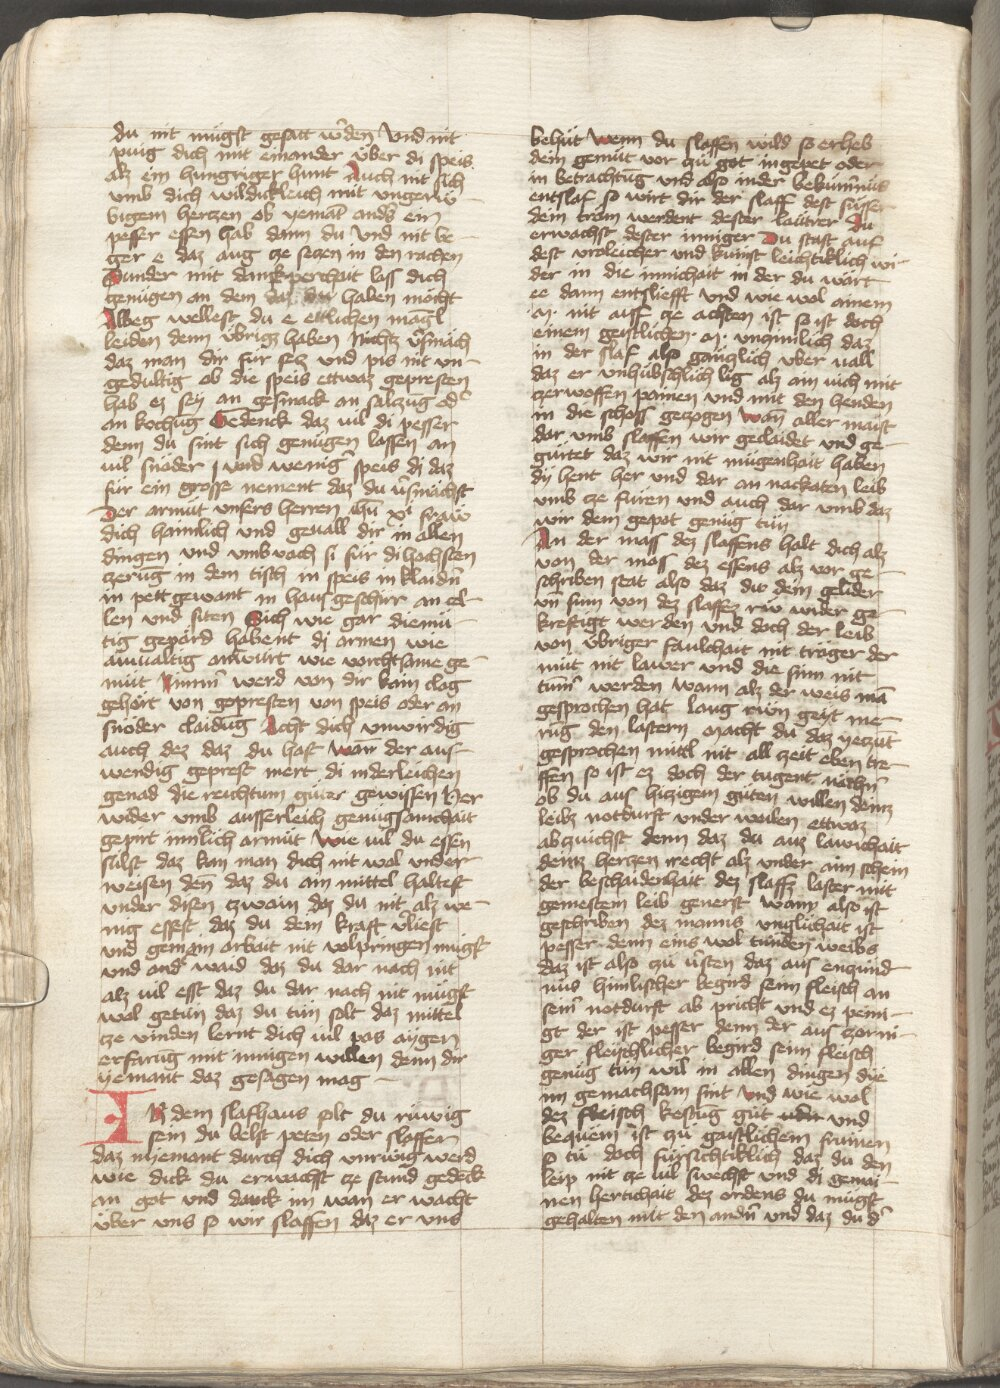 du nit mügst gesatt w̄den Vnd nit
puig dich mit einander Über di speis
alz ein hungriger hunt Auch nit sich
vmb dich wildickleich mit vngerüb
bigem hertzen ob yeman andˢ ein
pesser essen hab dann du Vnd nit be
ger e daz aug cze setzen in den rachen
Sunder mit danckperchait lass dich
genügen an dem daz du haben mocht
Albeg wellest du e ettlichen mägl
leiden denn übrigz haben Nichtz v̄smäch
daz man dir für setz vnd pis nit vn
gedultig ob die speis ettwaz gepresten
hab ez sey an gesmack an salczūg odˢ
an kochūg Gedenck daz vil di pesser
denn du sint sich genügen lassen an
vil snöder vnd wenigˢ speis di daz
für ein grosse nement daz du v̄smächst
Der armüt vnsers herren ihū xi fräw
dich haimlich vnd geuall dir in allen
dingen vnd vmbvach si für di höchsten
czerūg in dem tisch in speis in klaidn̄
in pett gewant in haus geschirr an cel
len vnd siten Sich wie gar diemü
tig gepärd habent di armen wie
ainualtig antwürt wie vorchtsame ge
müt Nimm̄ werd von dir kain clag
gehört von gepresten von speis oder an
snöder claidūg Acht dich vnwirdig
auch dez daz du hast wan der aus
wendig geprest mert di inderleichen
genad die reichtum guter gewissen Her
wider vmb ausserleich genügsamchait
gepirt innlich armüt Wie vil du essen
süllst daz kan man dich nit wol vnder
weisen denn daz du ain mittel haltest
vnder disen czwain daz du nit alz we
nig essest daz du dein kraft v̄liest
vnd gemain arbait nit volpringen mügst
vnd andˢ waid daz du dar nach nit
alz vil esst daz du dar nach nit mügst
wol getün daz du tün solt daz mittel
cze vinden lernt dich vil pas aygen
erfarūg mit innigen willen denn dir
yemant daz gesagen mag
In dem slafhaus solt du rüwig
sein du belst peten oder slaffen
daz nyemant durch dich vnrüwig werd
wie dick du erwachst cze stund gedēck
an got vnd danck im wan er wacht
über vns so wir slaffen daz er vns
behüt Wenn du slaffen wild so erheb
dein gemüt vor czu got in gepet oder
in betrachtūg vnd also in der bekūm̄nüs
entslaf so wirt dir der slaff dest süsser
dem tram werdent dester lautrer Du
erwachst dester inniger Du stast auf
dest vröleicher vnd kumst leichtiklich wi
der in die innichait in der du wärt
ee dann entslieffst Vnd wie wol ainem
.m. nit auff ze achten ist so ist doch
einem geistlichen .m. vnczimlich daz
in der slaf also genczlich über vall
daz er vnhübschlich lig alz ain vich mit
czerworffen painen vnd mit den henden
in die schoss geczogen Wan aller maist
dar vmb slaffen wir geclaidet vnd ge
gürtet daz wir nit mügenhait haben
dy hent her vnd dar an nackaten leib
vmb cze füren vnd auch dar vmb daz
wir dem gepot genüg tün
An der mass dez slaffens halt dich alz
von der mas dez essens alz vor ge
schriben stat also daz die dein gelider
vn̄ sinn von dez slaffez rw wider ge
kreftigt werden vnd doch der leib
von übriger faulchait nit träger der
müt nit lawer vnd die sinn nit
tūm̄ werden wann alz der weis mā
gesprochen hat lang rwn geit ne
rūg den lastern Macht du daz yetzūt
gesprochen mittl nit all zeit eben tre
ffen so ist ez doch der tugent nachn̄
ob du aus hiczigem güten willen deinz
leibz notdurft vnder weilen ettwaz
abczuichst denn daz du auz lawichait
deinz hertzen recht alz vnder aim schein
der beschaidenhait dez slaffz laster mit
gemestem leib generst Wann also ist
geschriben dez mannz vnglichait ist
pesser denn eins wol tünden weibs
daz ist also czü usten daz aus enczünd
nus himlischer begird seim fleisch an
seinˢ notdurft ab pricht vnd ez peini
gt der ist pesser denn der aus czorni
ger fleyschlicher begird seim fleisch
genüg tün wil in allen dingen dye
im gemachsam sint Vnd wie wol
dez fleisch kestūg güt vnd
bequem ist czü gaistlichem frumen
so tü doch fürsichtiklich daz du den
leip nit ze vil swechst vnd di gemai
nen hertichait dez ordens du mügst
gehalten mit den andn̄ vnd daz du dˢ